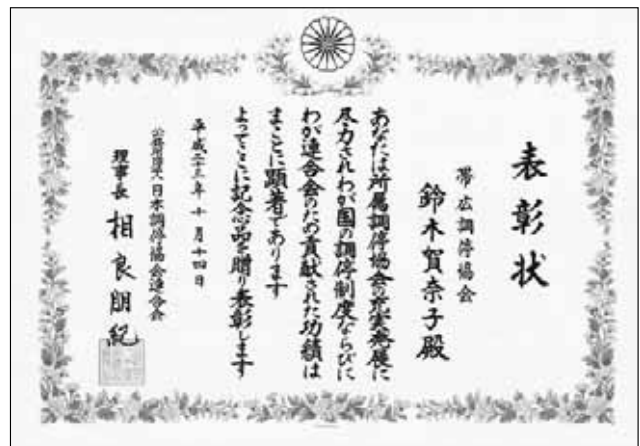 表彰状
帯広調停協会
鈴木賀奈子殿
あなたは所属調停協会の充実発展に
尽力されわが国の調停制度ならびに
わが連合会のため貢献された功績は
まことに顕著であります
よってここに記念品を贈り表彰します
平成二十三年十月十四日
公益財団法人日本調停協会連合会
理事長 相良朋紀